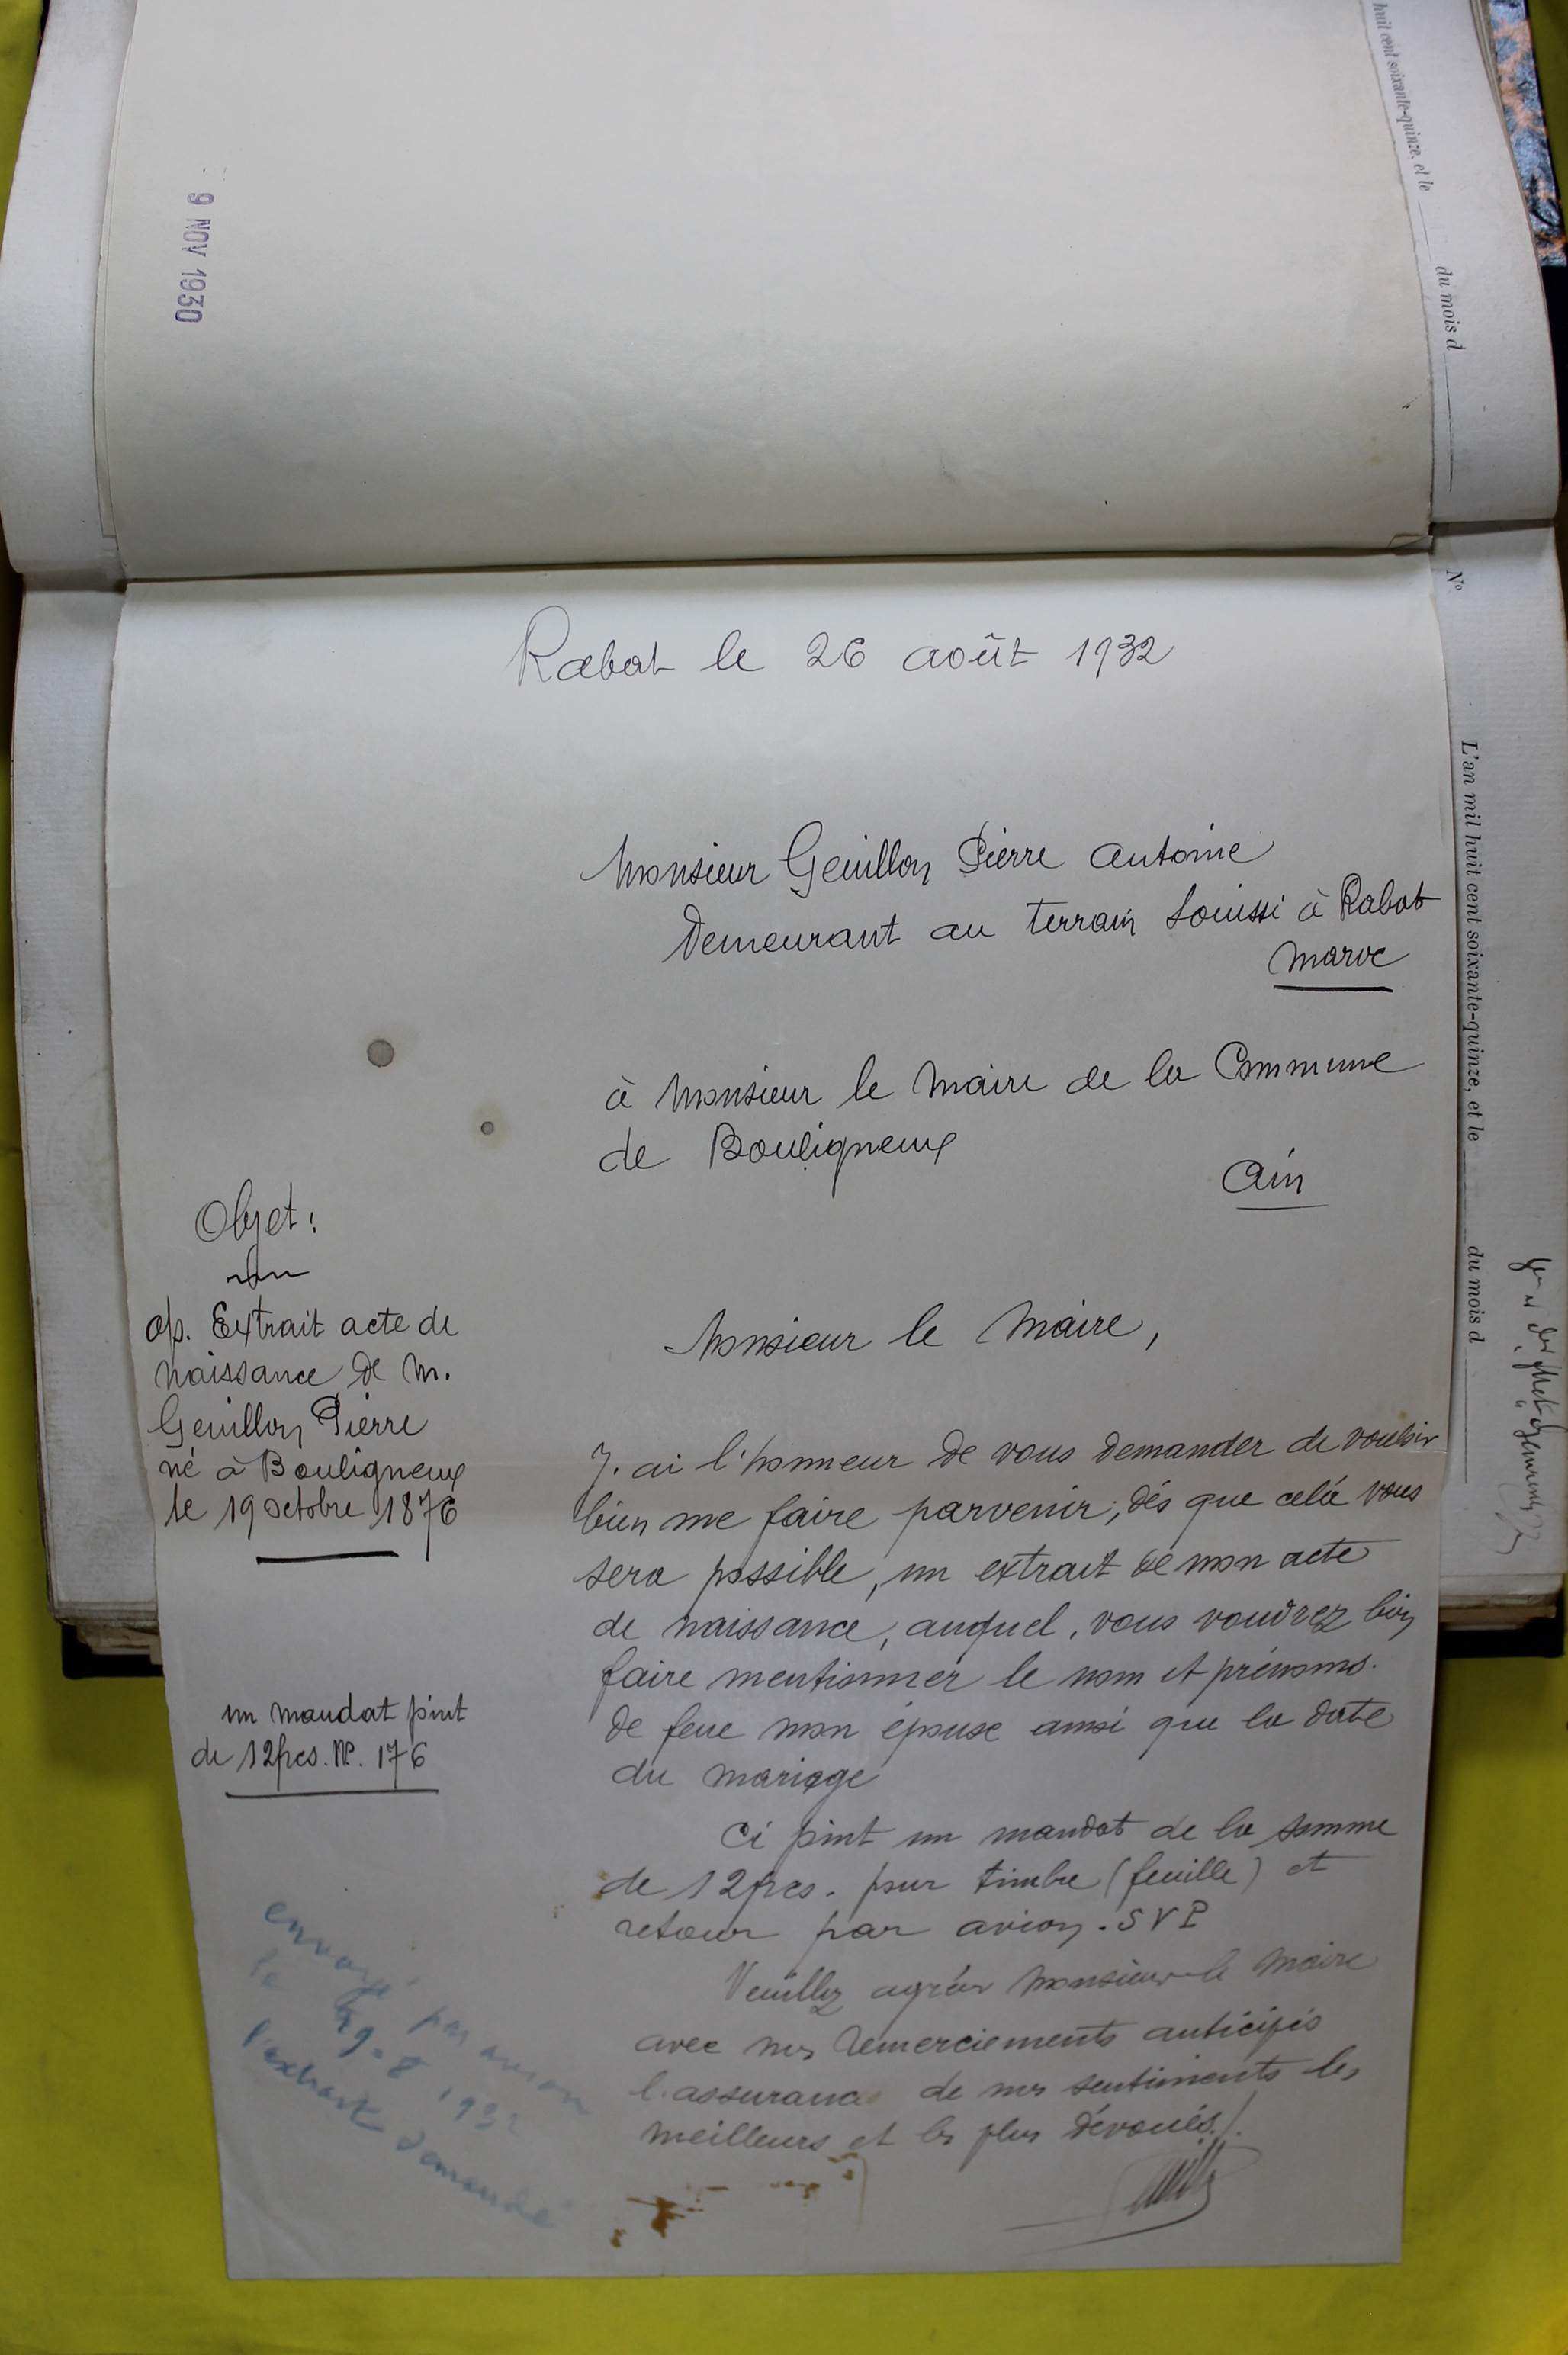 9 NOV 1930
huit cent soixante-quinze, et le
du mois d
Nº
L'an mil huit cent soixante-quinze, et le
du mois d
Rabat le 26 août 1932
Monsieur Genillon Pierre Antoine
Demeurant au terrain Souissi à Rabat
Maroc
à Monsieur le Maire de la Commune
de Bouligneux
Ain
Objet :
Extrait acte de
Naissance de M.
Genillon Pierre
né à Bouligneux
le 19 octobre 1876
un mandat joint
de 12frcs. Nº. 176
Monsieur le Maire,
J'ai l'honneur de vous demander de vouloir
bien me faire parvenir, dès que cela vous
sera possible, un extrait de mon acte
de naissance, auquel, vous voudrez bien
faire mentionner le nom et prénoms.
de feue mon épouse ainsi que la date
du mariage
Ci joint un mandat de la somme
de 12frcs. pour timbre (feuille) et
retour par avion. SVP
Veuillez agréer Monsieur le Maire
avec mes remerciements anticipés
l'assurance de mes sentiments les
meilleurs et les plus dévoués./.
envoyé par avion
le 29-8 1932
l'extrait demandé